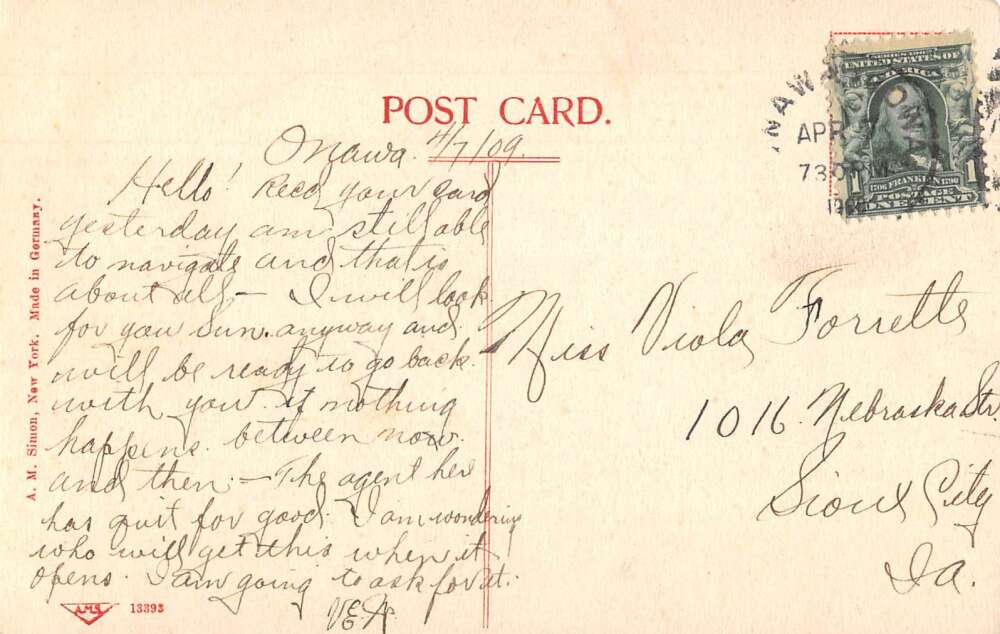 POST CARD.
Onawa. 4/7/09.
Hello! Recd your card
yesterday am still able
to navigate and that is
about all,- I will look
for you Sun. anyway and
will be ready to go back
with you if nothing
happens between now
and then.- The agent here
has quit for good. I am wondering
who will get this when it
opens. I am going to ask for it.
Miss Viola Forrette
1016. Nebraska Str.
Sioux City
Ia.
A. M. Simon, New York. Made in Germany.
AMS 13393
SERIES 1902
UNITED STATES OF
AMERICA
1706 FRANKLIN 1790
1 1
POSTAGE
ONE CENT
NAWA
IOWA
APR
730